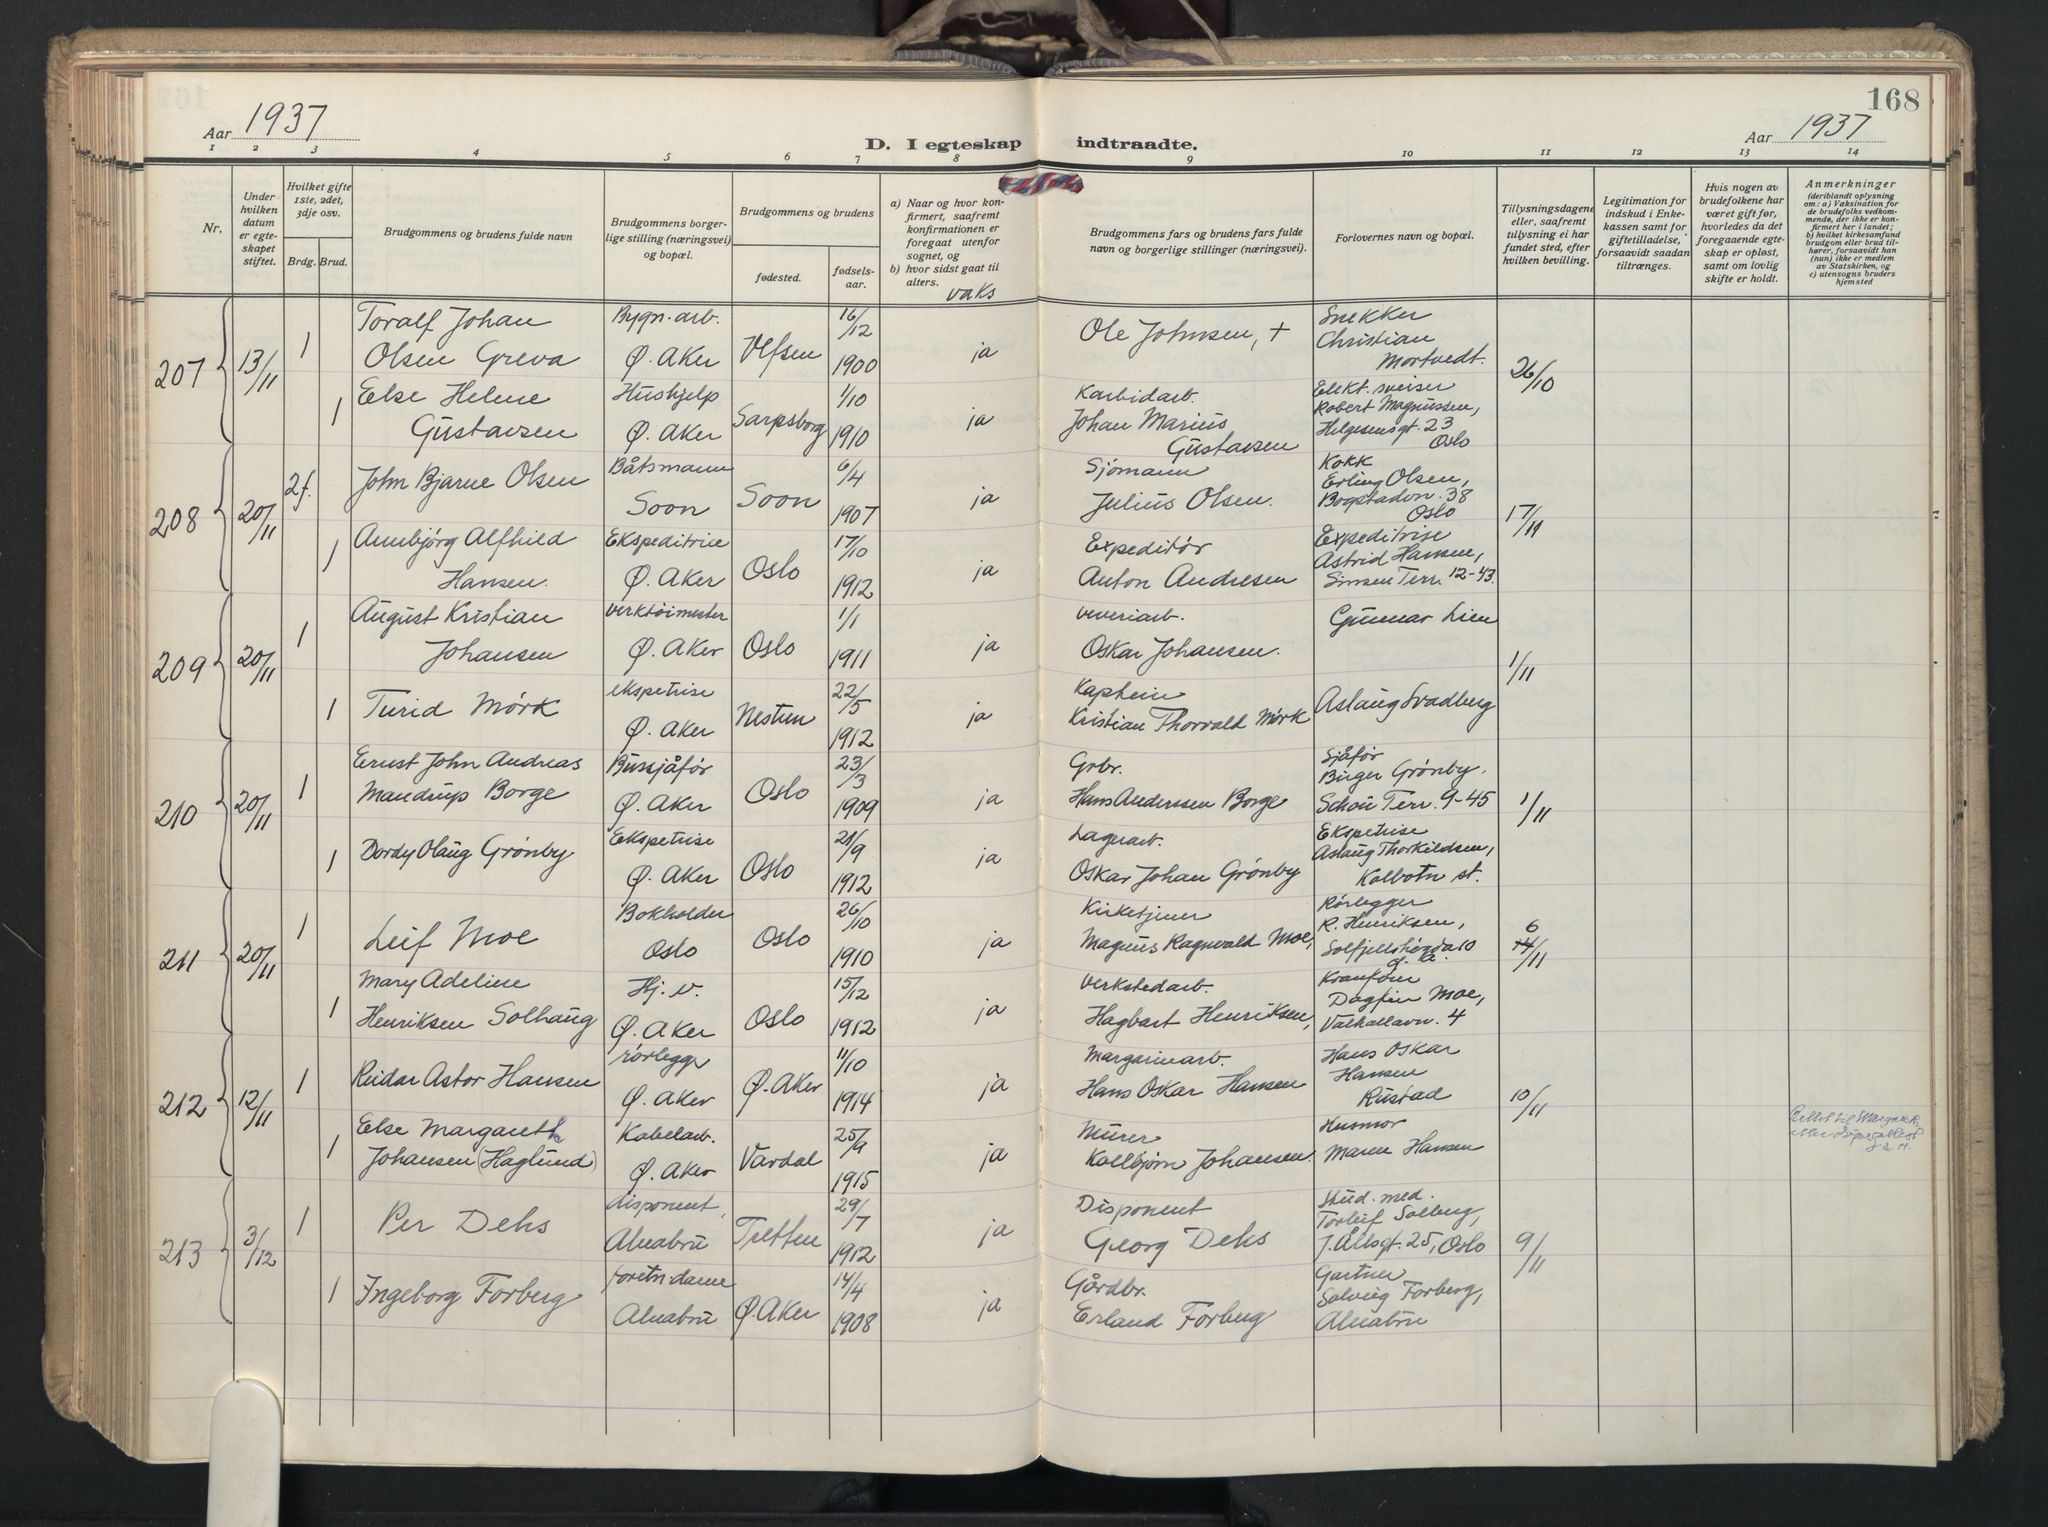 168
Aar 1937
D. I egteskap indtraadte.
Aar 1937
1 2 3 4 5 6 7 8 9 10 11 12 13 14
Nr.
Under hvilken datum er egteskapet stiftet.
Hvilket gifte 1ste, 2det, 3dje osv.
Brdg. Brud.
Brudgommens og brudens fulde navn
Brudgommens borgerlige stilling (næringsvei) og bopæl.
Brudgommens og brudens
fødested.
fødselsaar.
a) Naar og hvor konfirmert, saafremt konfirmationen er foregaat utenfor sognet, og
b) hvor sidst gaat til alters.
vaks
Brudgommens fars og brudens fars fulde navn og borgerlige stillinger (næringsvei).
Forlovernes navn og bopæl.
Tillysningsdagene eller, saafremt tillysning ei har fundet sted, efter hvilken bevilling.
Legitimation for indskud i Enkekassen samt for giftetilladelse, forsaavidt saadan tiltrænges.
Hvis nogen av brudefolkene har været gift før, hvorledes da det foregaaende egteskap er opløst, samt om lovlig skifte er holdt.
Anmerkninger
(deriblandt oplysning om: a) Vaksination for de brudefolks vedkommende, der ikke er konfirmert her i landet; b) hvilket kirkesamfund brudgom eller brud tilhører, forsaavidt han (hun) ikke er medlem av Statskirken, og c) utensogns bruders hjemsted
207 13/11 1 Toralf Johan Bygn.arb. 16/12 Ole Johnsen, + Snekker
Olsen Greva Ø. Aker Vefsen 1900 ja Christian Mortvedt.
26/10
Else Helene Hushjelp 1/10 Karbidarb. Elekt. sveiser
1 Gustavsen Ø. Aker Sarpsborg 1910 ja Johan Marius Gustavsen Robert Magnussen,
Helgesensgt. 23 Oslo
208 20/11 2f. John Bjarne Olsen Båtsmann 6/4 Sjömann Kokk
Soon Soon 1907 ja Julius Olsen. Erling Olsen,
Bogstadvn. 38 Oslo
17/11
Annbjörg Alfhild Ekspeditrice 17/10 Expeditör Expeditrise
1 Hansen. Ø. Aker Oslo 1912 ja Anton Andresen Astrid Hansen,
Sinsen Terr. 12-43.
209 20/11 1 August Kristian verktöimester 1/1 veveriarb. Gunnar Lien
Johansen Ø. Aker Oslo 1911 ja Oskar Johansen.
1/11
1 Turid Mörk ekspetrise 22/5 Kaptein
Ø. Aker Nestun 1912 ja Kristian Thorvald Mörk Aslaug Svadberg
210 20/11 1 Ernst John Andreas Bussjåför 23/3 Grbr. Sjåför
Mandrup Borge Ø. Aker Oslo 1909 ja Hans Anderssen Borge Birger Grönby.
Schou Terr. 9-45 1/11
1 Dordy Olaug Grönby Ekspetrise 21/9 Lagerarb. Ekspetrise
Ø. Aker Oslo 1912 ja Oskar Johan Grönby Aslaug Thorkildsen,
Kolbotn st.
211 20/11 1 Leif Moe Bokholder 26/10 Kirketjener Rörlegger
Oslo Oslo 1910 ja Magnus Ragnvald Moe, R. Henriksen,
Solfjellshögda 10 Ø. A.
6/11
Mary Adeline Hj. v. 15/12 Verkstedarb. Kranförer
1 Henriksen Solhaug Ø. Aker Oslo 1912 ja Hagbart Henriksen, Dagfin Moe,
Valhallavn. 4
212 12/11 1 Reidar Astor Hansen rörlegger 11/10 Margarinarb. Hans Oskar
Ø. Aker Ø. Aker 1914 ja Hans Oskar Hansen Hansen
Rustad 10/11
Else Margareth Kabelarb. 25/9 Murer Husmor
1 Johansen (Haglund) Ø. Aker Vardal 1915 ja Kolbjörn Johansen. Maren Hansen
213 3/12 1 Per Dehs disponent, 29/7 Disponent Stud. med.
Alnabru Tretten 1912 ja Georg Dehs Torleif Solberg,
J. Ållsgt. 25, Oslo 9/11
1 Ingeborg Forberg foretn.dame 14/4 Gårdbr. Gartner
Alnabru Ø. Aker 1908 ja Erland Forberg Solveig Forberg,
Alnabru